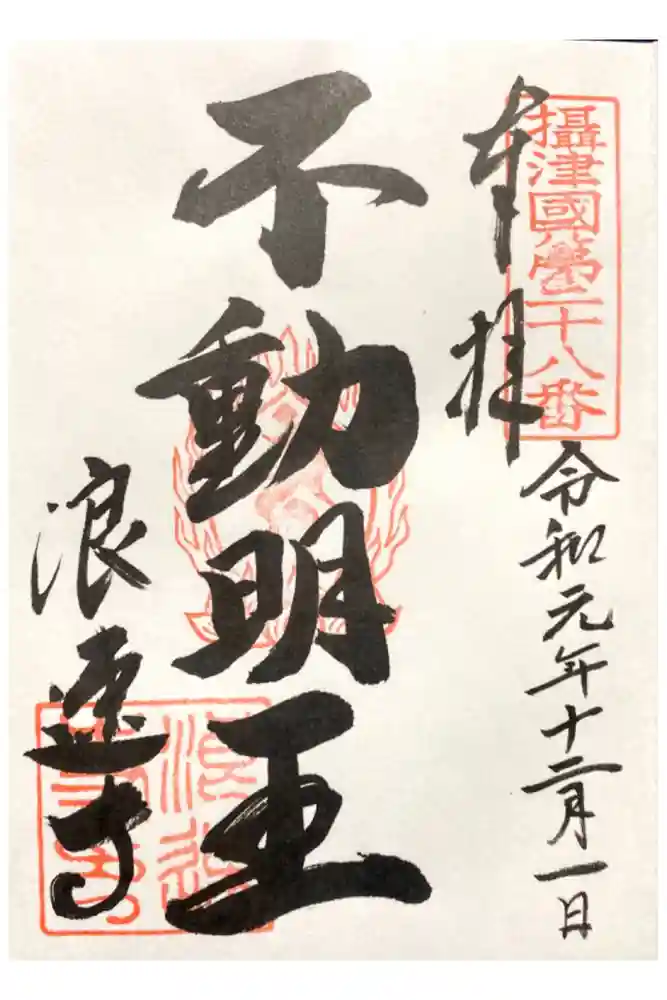 攝津國八十八第二十八番
奉拝
令和元年十二月一日
不動明王
浪速寺